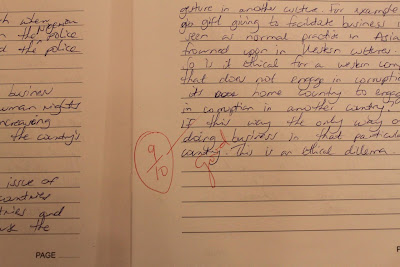 ch when
Nigerian
n the police
d the police
business
human rights
increasing
the country's
issue of
countries
tries and
the
PAGE
gesture in another culture. For example
go gift giving to facilitate business is
seen as normal practice in Asia
frowned upon in Western cultures.
So is it ethical for a western com
that does not engage in corruption
its home country to engag
in corruption in another country,
if this way the only way of
doing business in that particula
country. This is an ethical dilema.
9/10
Good
PAGE